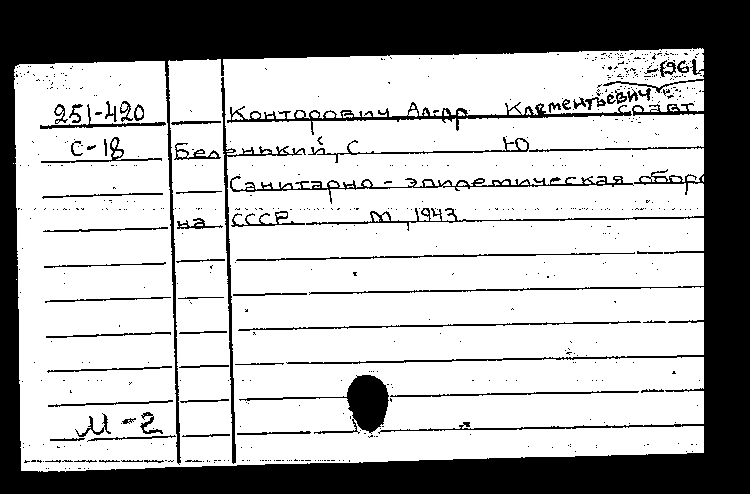 -1961
251-420 Конторович, Ал-др Клементьевич соавт
С-18 Беленький, С. Ю
Санитарно-эпидемическая оборо
на СССР. М, 1943
М-2